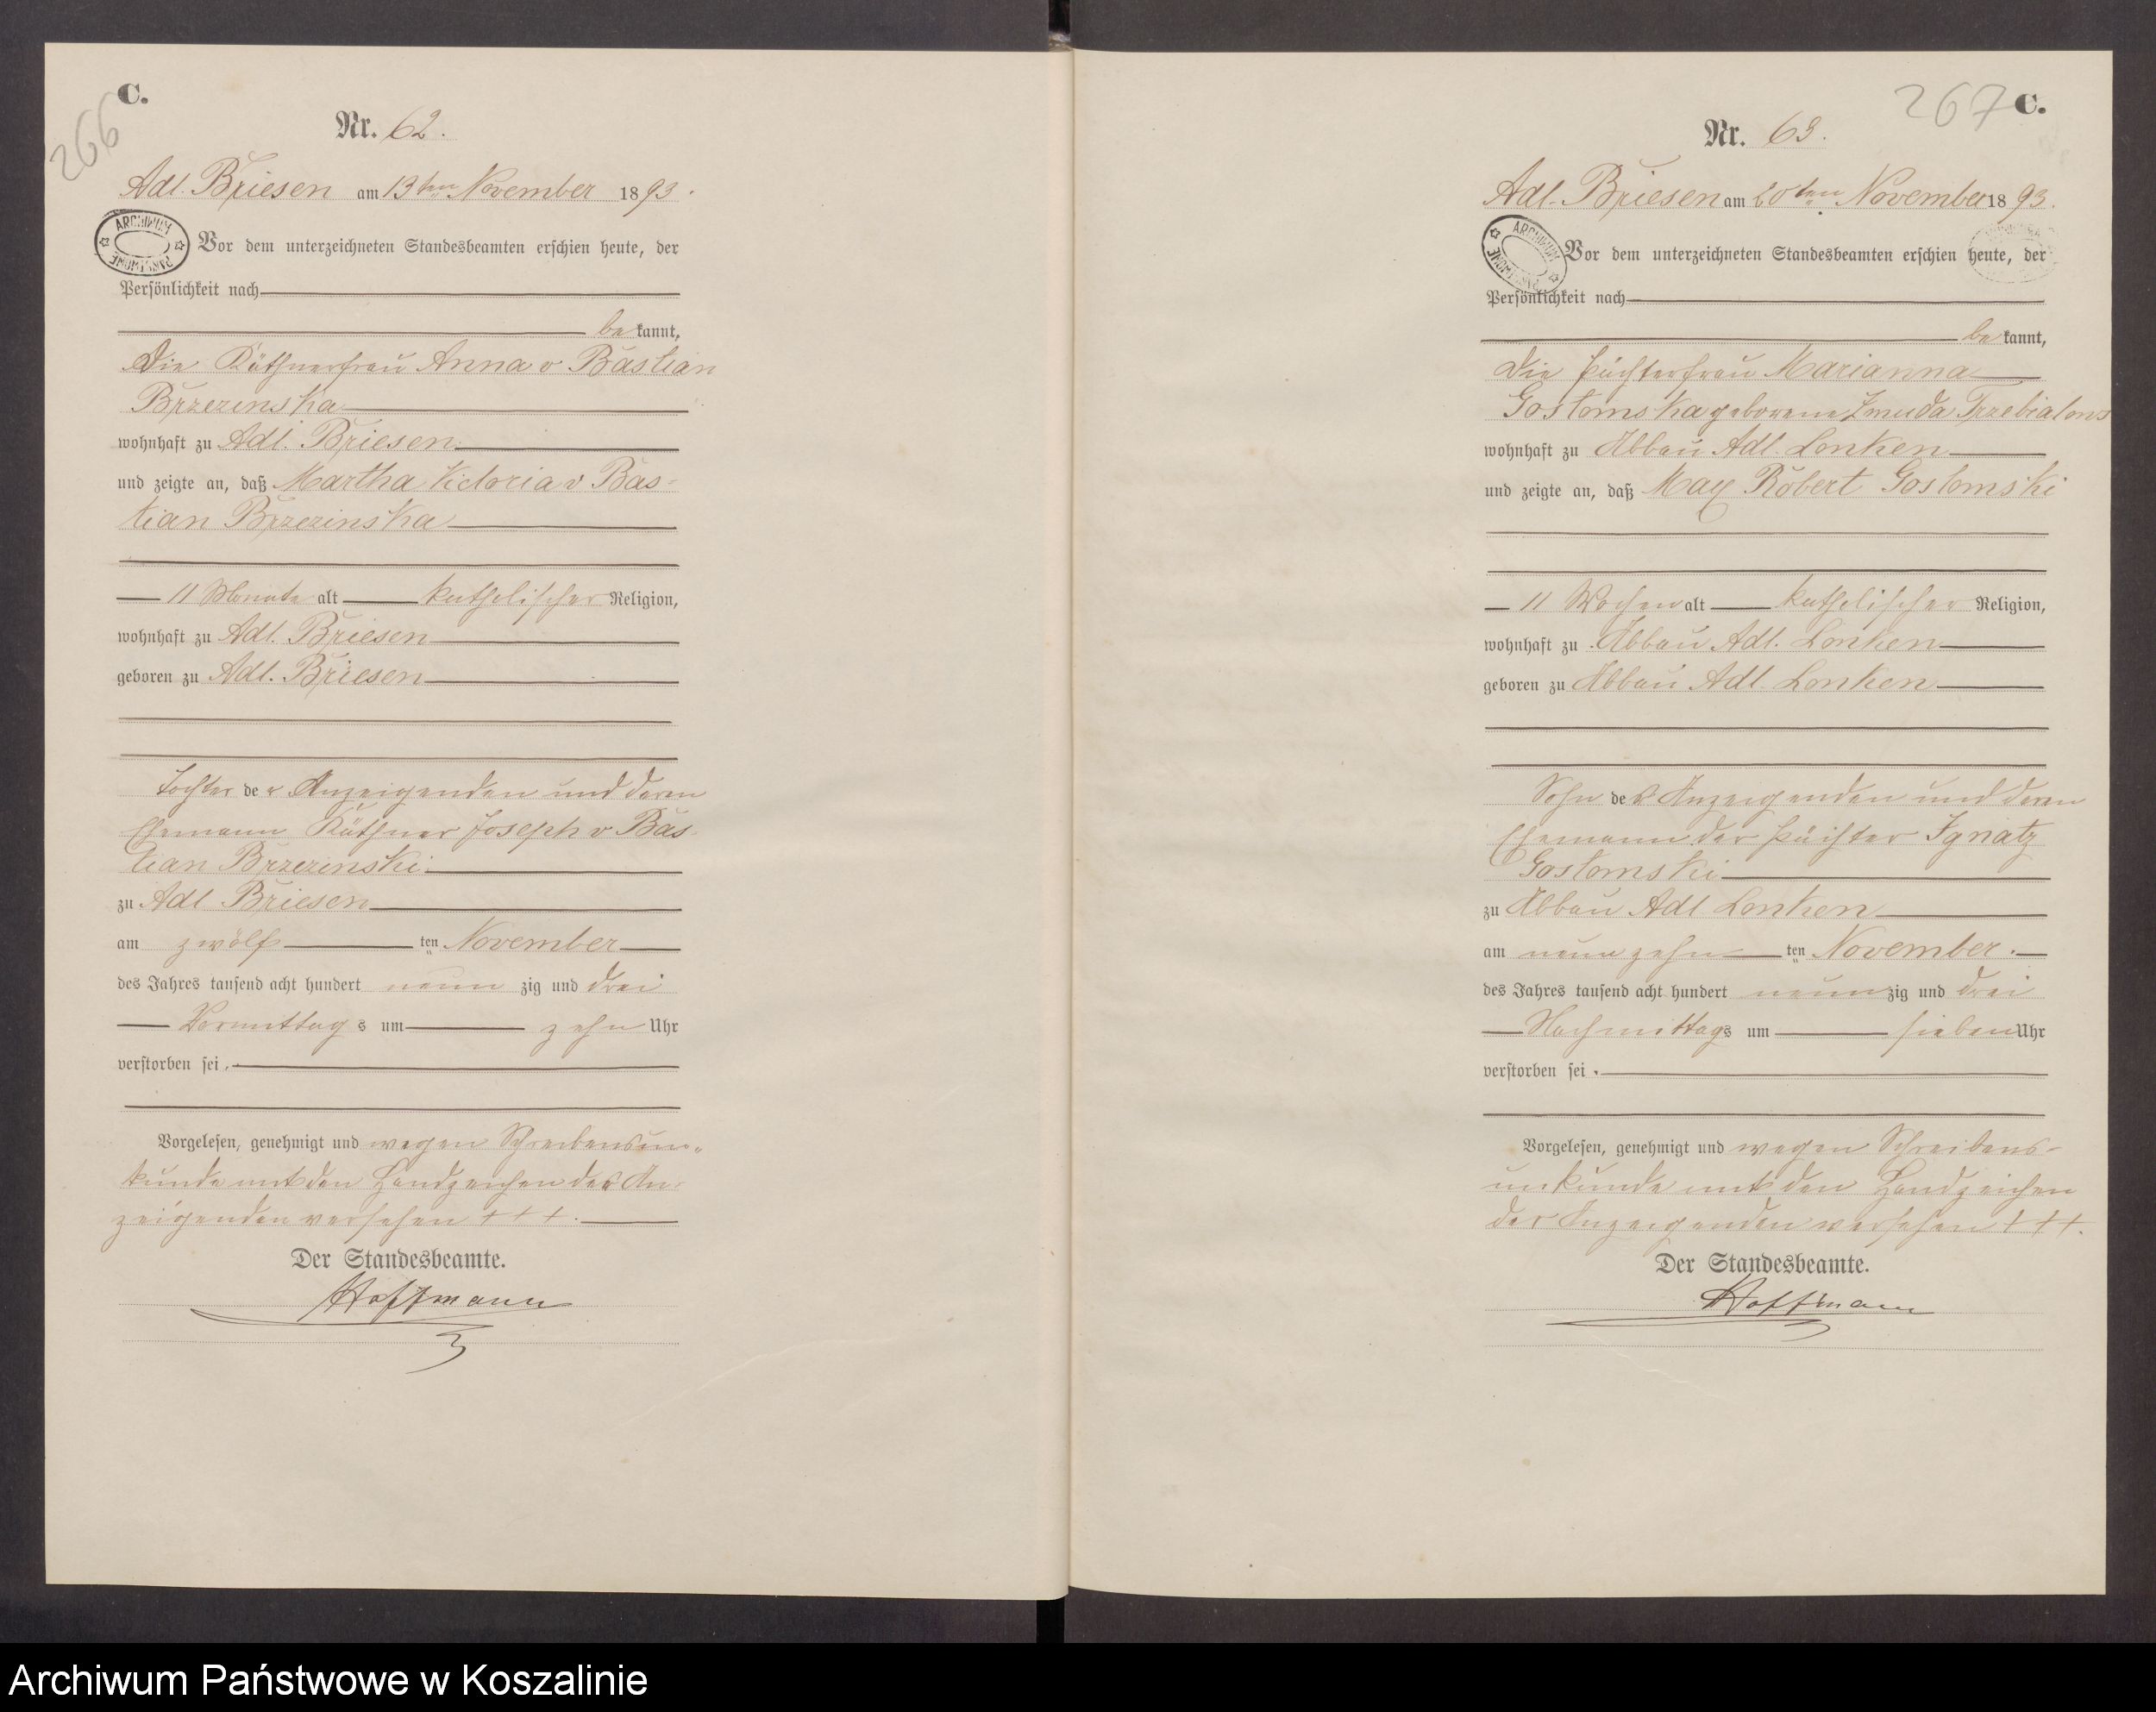 C.
266
Nr. 62.
Adl. Briesen am 13ten November 1893.
ARCHIWUM PAŃSTWOWE
Vor dem unterzeichneten Standesbeamten erschien heute, der
Persönlichkeit nach
bekannt,
Die Käthnerfrau Anna v Bastian
Brzezinska
wohnhaft zu Adl. Briesen
und zeigte an, daß Martha Victoria v Bas-
tian Brzezinska
11 Monate alt katholischer Religion,
wohnhaft zu Adl. Briesen
geboren zu Adl. Briesen
Tochter der Anzeigenden und deren
Ehemann Käthner Joseph v Bas-
tian Brzezinski
zu Adl Briesen
am zwölf ten November
des Jahres tausend acht hundert neun zig und drei
Vormittags um zehn Uhr
verstorben sei.
Vorgelesen, genehmigt und wegen Schreibensun-
kunde mit den Handzeichen der An-
zeigenden versehen +++.
Der Standesbeamte.
Hoffmann
267 C.
Nr. 63.
Adl. Briesen am 20ten November 1893.
ARCHIWUM PAŃSTWOWE
Vor dem unterzeichneten Standesbeamten erschien heute, der
Persönlichkeit nach
bekannt,
Die Pächterfrau Marianna
Gostomska geborene Zmuda Trzebiatows
wohnhaft zu Abbau Adl. Lonken
und zeigte an, daß Max Robert Gostomski
11 Wochen alt katholischer Religion,
wohnhaft zu Abbau Adl. Lonken
geboren zu Abbau Adl. Lonken
Sohn der Anzeigenden und deren
Ehemann der Pächter Ignatz
Gostomski
zu Abbau Adl Lonken
am neunzehn ten November.
des Jahres tausend acht hundert neunzig und drei
Nachmittags um sieben Uhr
verstorben sei.
Vorgelesen, genehmigt und wegen Schreibens-
unkunde mit den Handzeichen
der Anzeigenden versehen +++.
Der Standesbeamte.
Hoffmann
Archiwum Państwowe w Koszalinie